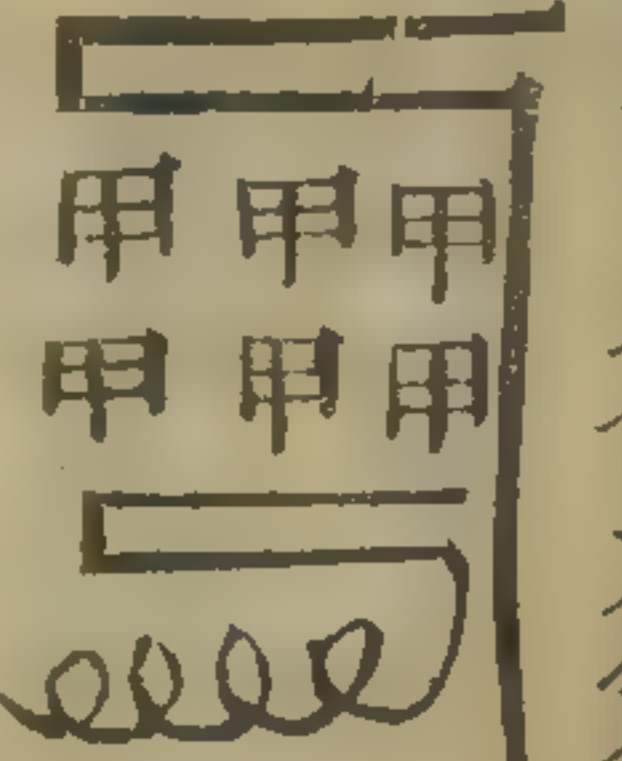 甲甲甲
甲甲甲